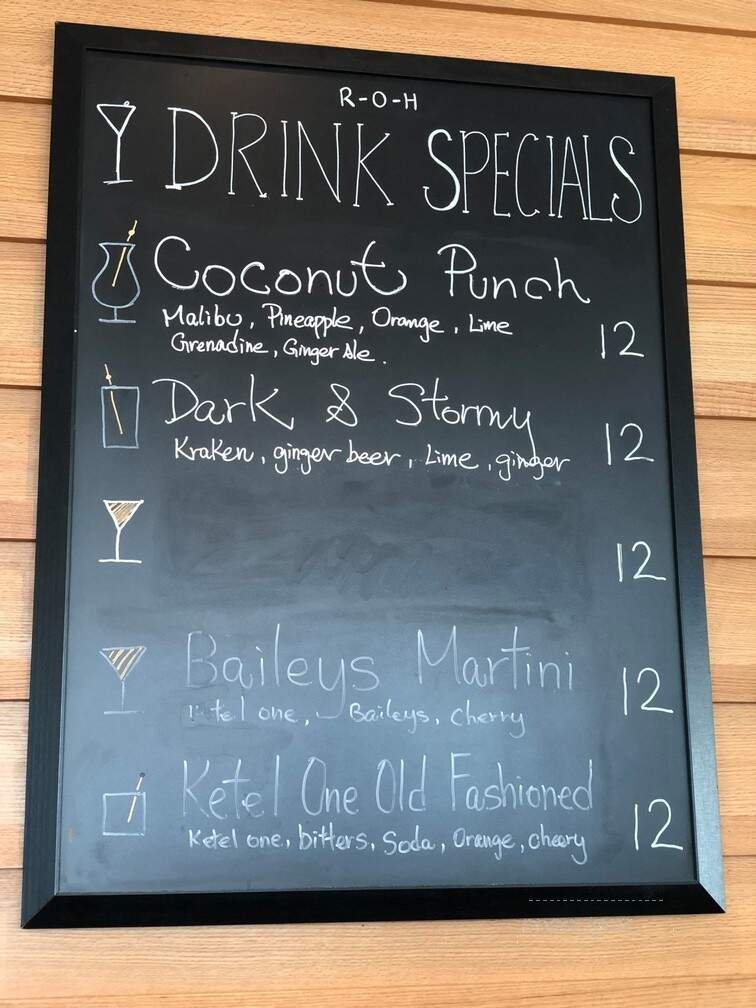 R-O-H
DRINK SPECIALS
Coconut Punch
Malibu, Pineapple, Orange, Lime
Grenadine, Ginger Ale.
12
Dark & Stormy
Kraken, ginger beer, Lime, ginger
12
12
Baileys Martini
Ketel one, Baileys, cherry
12
Ketel One Old Fashioned
Ketel one, bitters, Soda, Orange, cheery
12